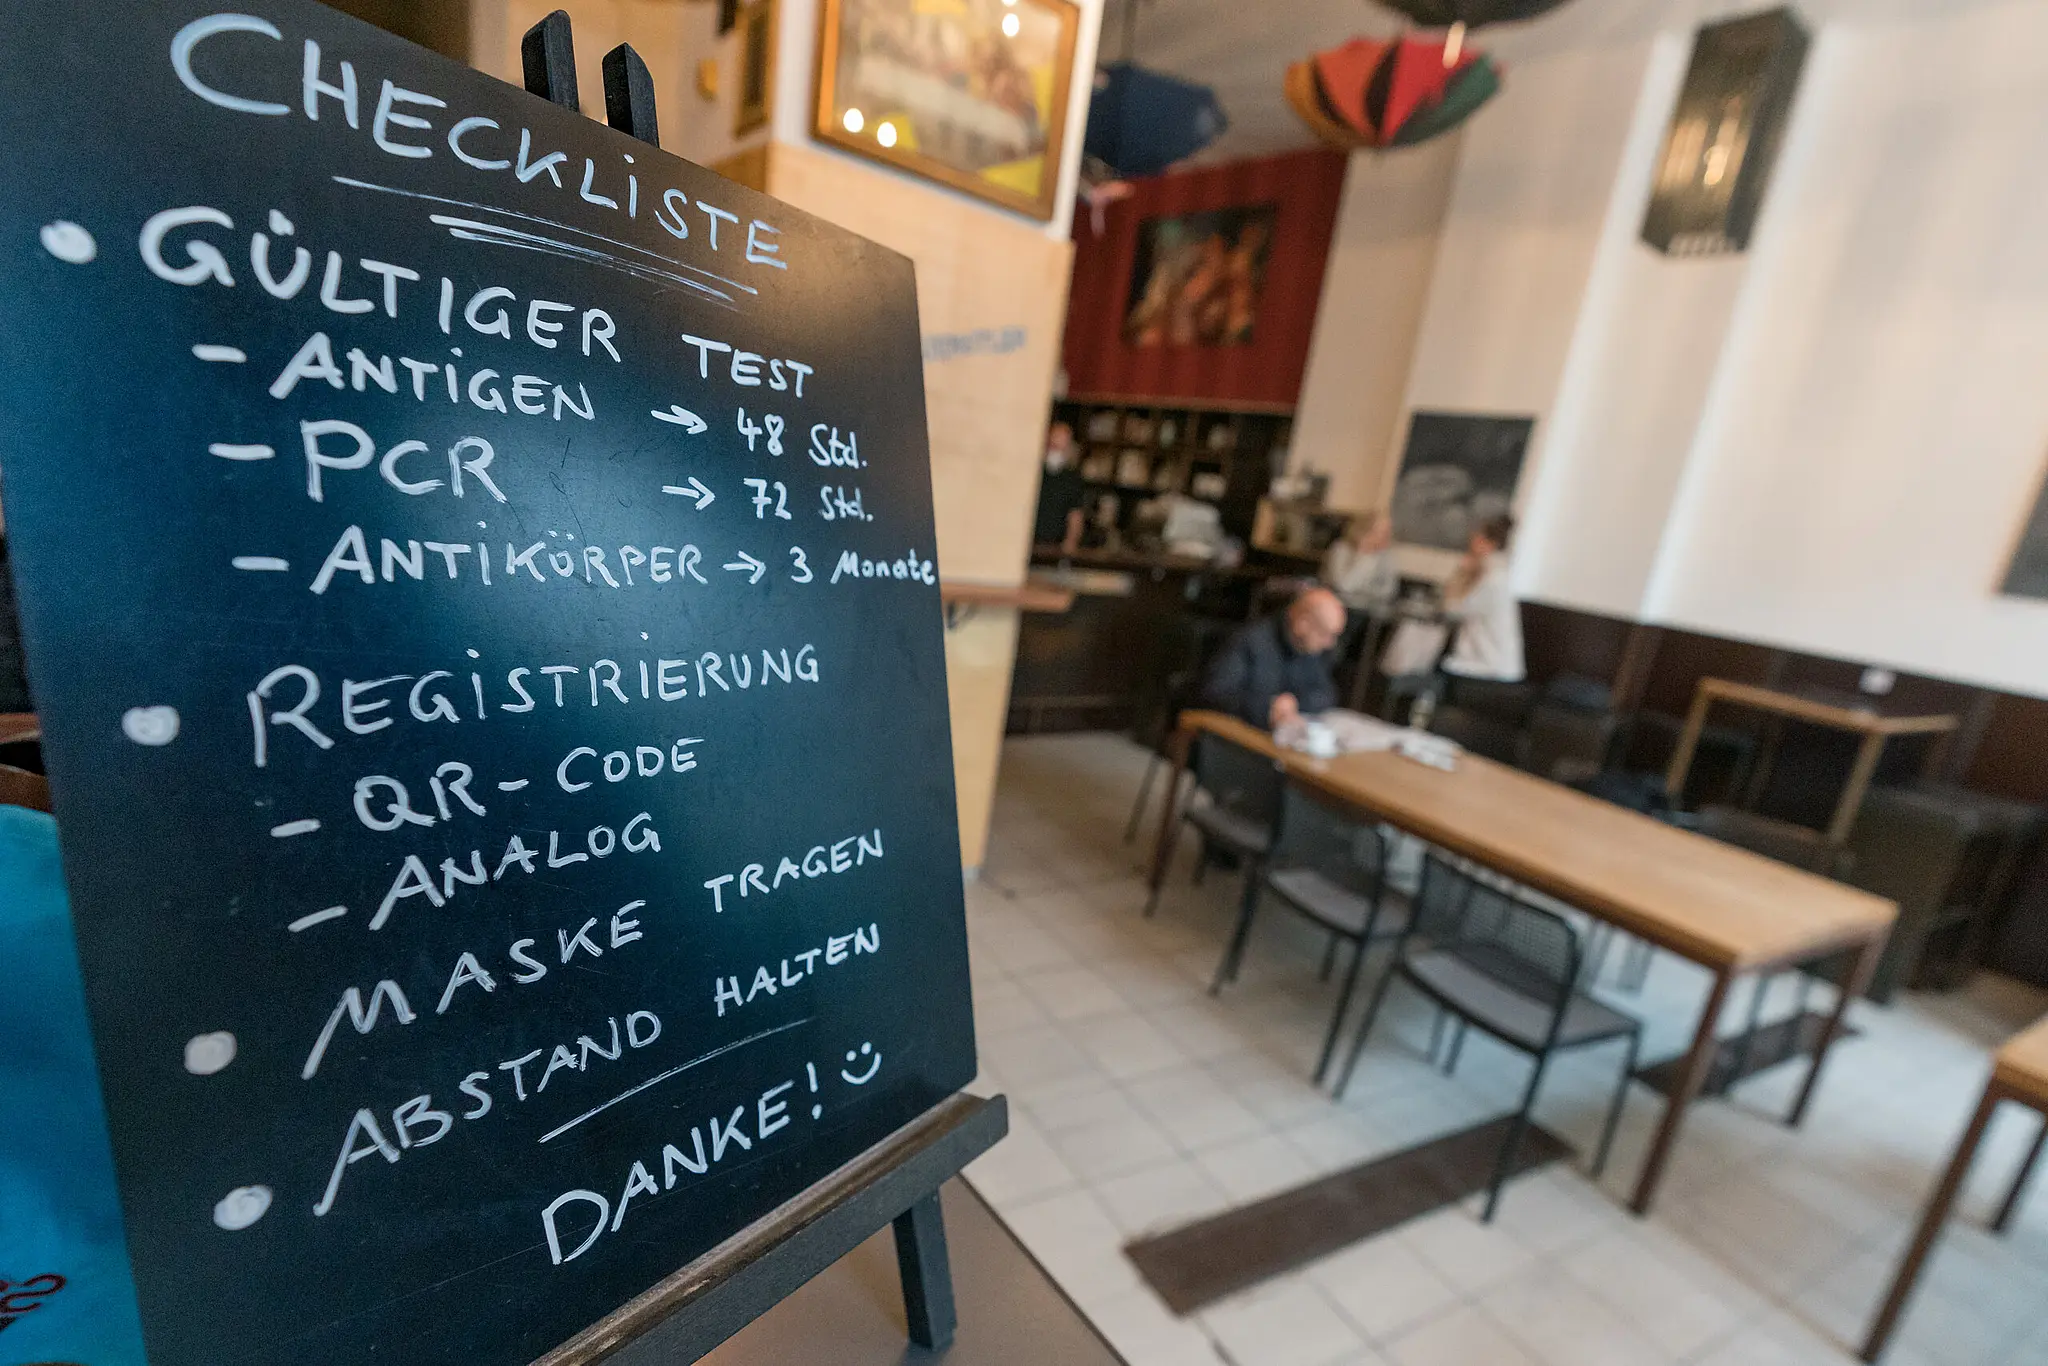 CHECKLISTE
• GÜLTIGER TEST
- ANTIGEN → 48 Std.
- PCR → 72 Std.
- ANTIKÖRPER → 3 Monate
• REGISTRIERUNG
- QR-CODE
- ANALOG
• MASKE TRAGEN
• ABSTAND HALTEN
DANKE! :)